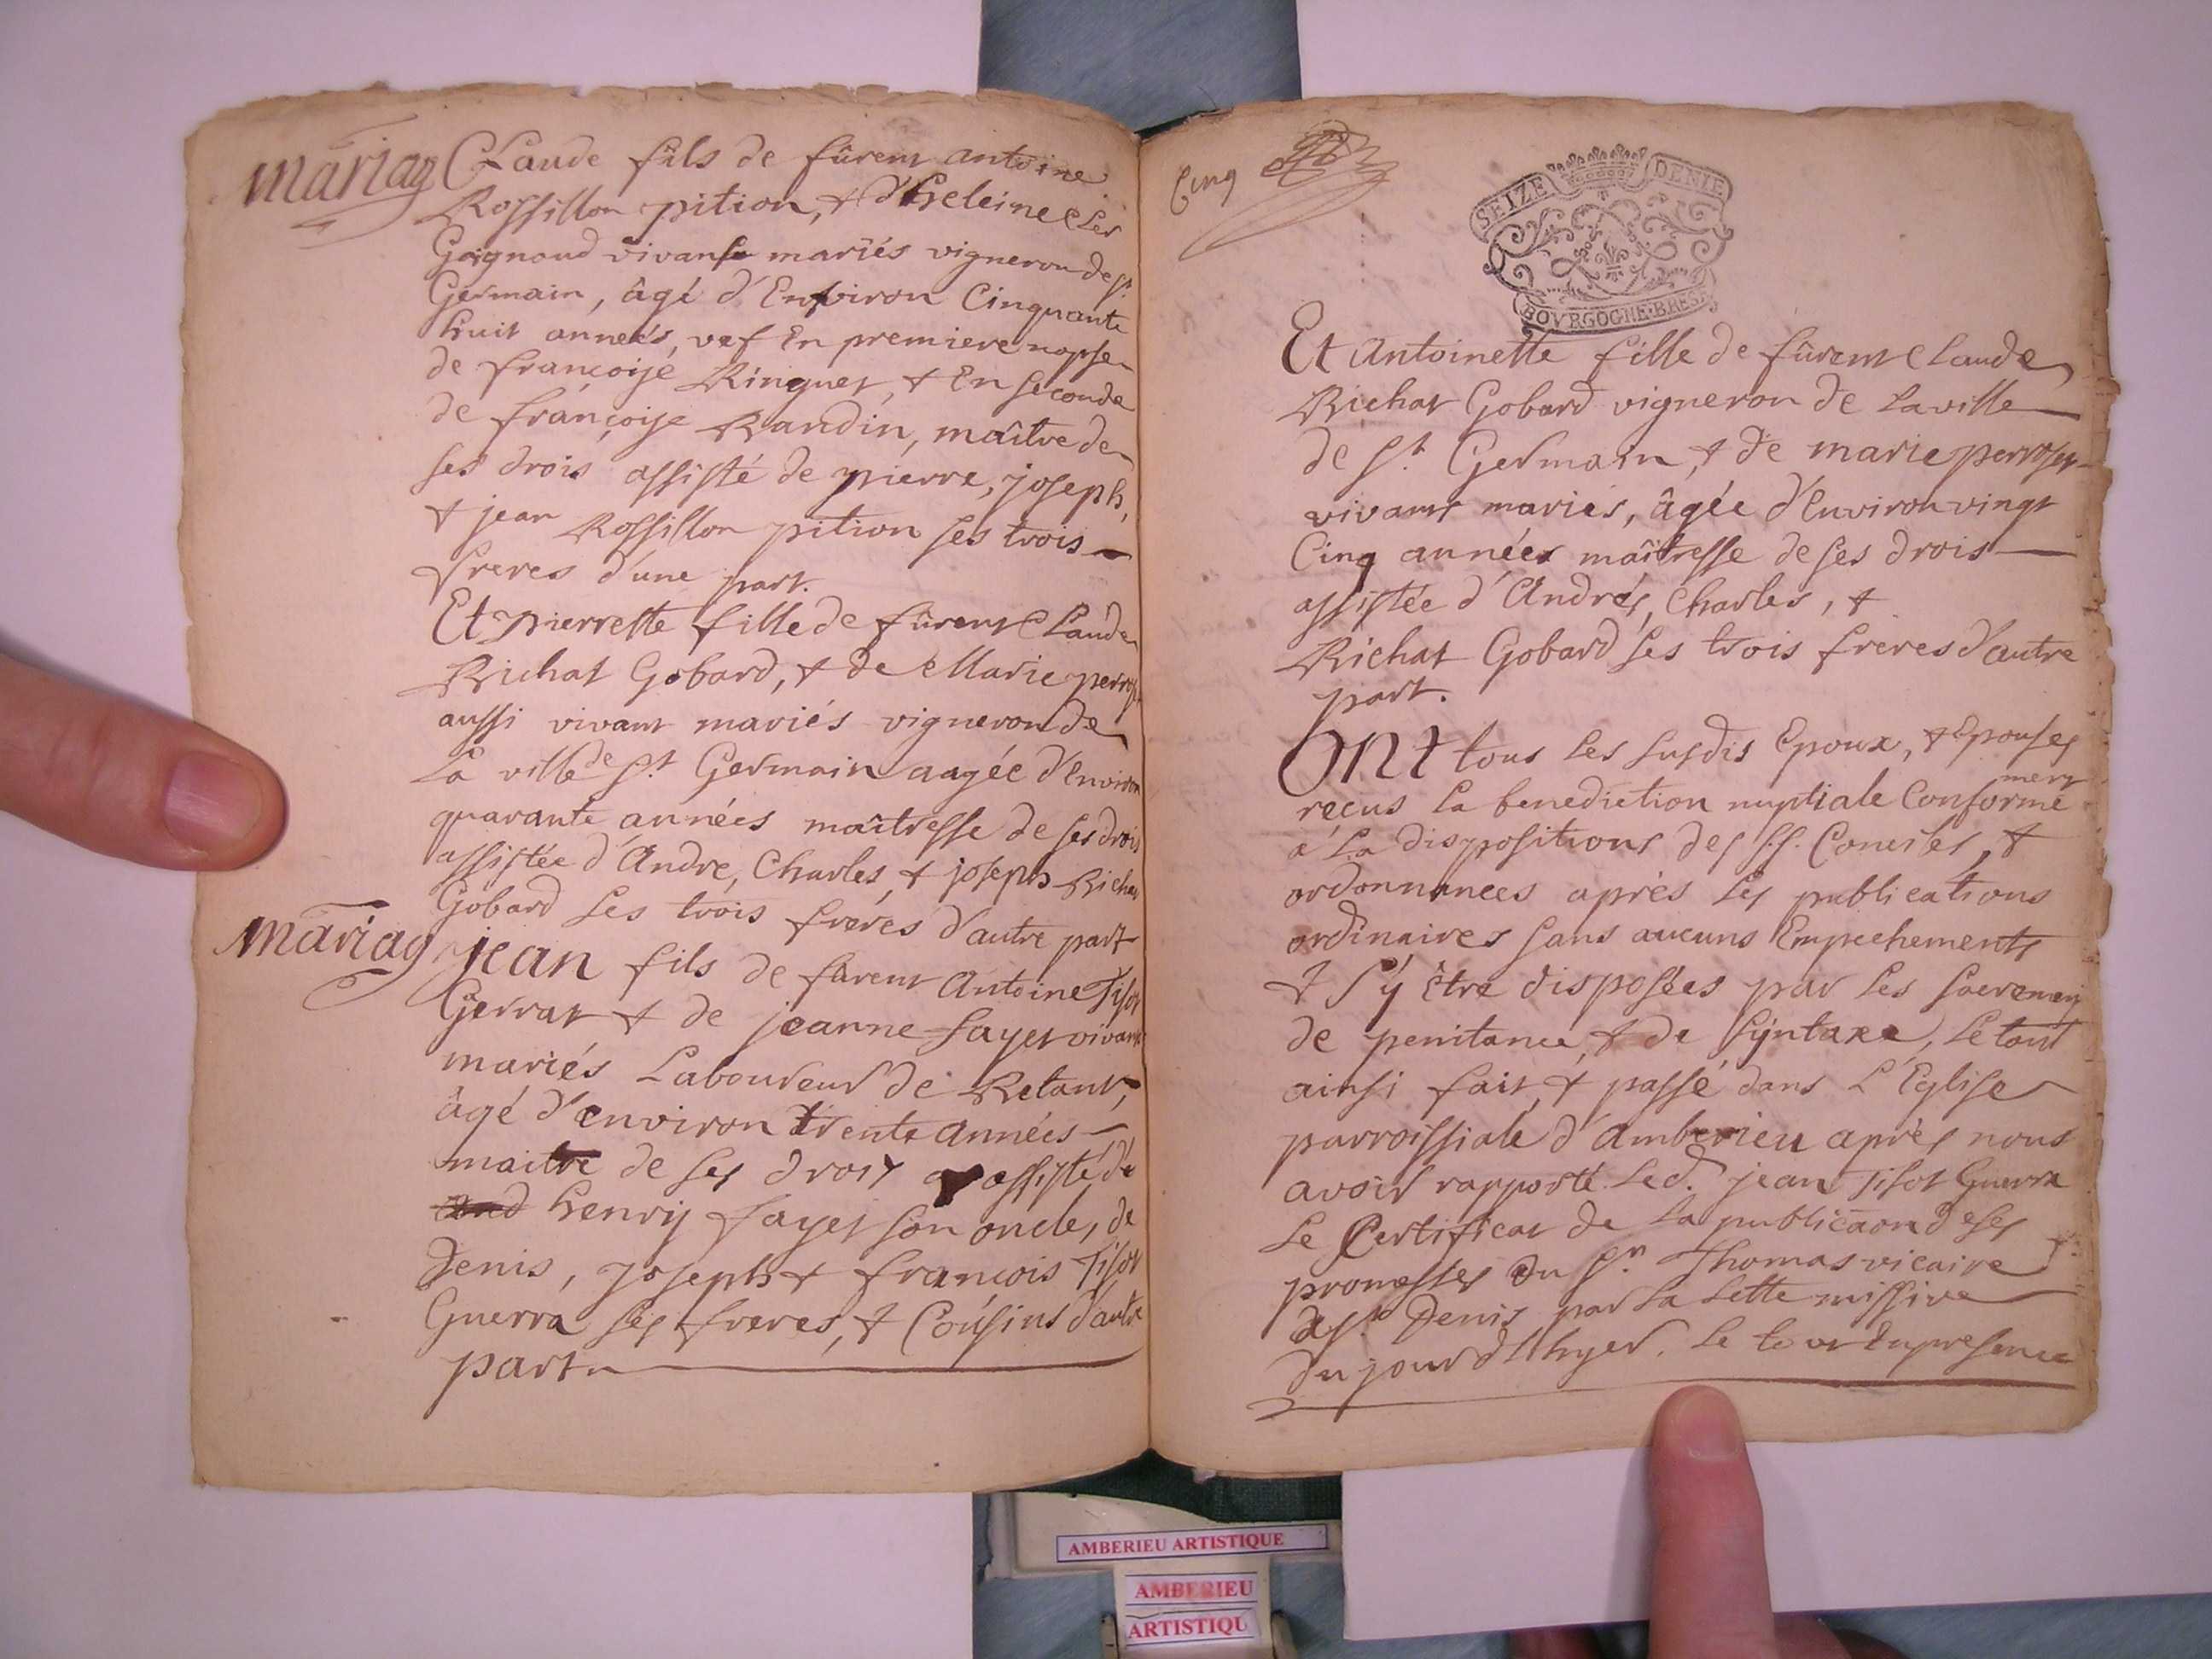 mariag
Claude fils de fûrent antoine
Rossillon pition, & d'heleine Cler
Goignoud vivants mariés vigneron de St
Germain, âgé d'Environ Cinquante
huit années, vef En premiere nopse
de françoise Ringuet, & En seconde
de françoise Randin, maître de
ses drois assisté de pierre, joseph,
& jean Rossillon pition ses trois
freres d'une part.
Et pierrette fille de fûrent Claude
Richat Gobard, & de Marie perroset
aussi vivant mariés vigneron de
La ville de St Germain aagée d'Environ
quarante années maîtresse de ses drois
assistée d'Andre, Charles, & joseph Richat
Gobard ses trois freres d'autre part
mariag
jean fils de fûrent Antoine Tisot
Gerrat & de jeanne fayet vivant
mariés Laboureur de Betant,
âgé d'environ trente Années
maitre de ses drois assisté de
henry fayet son oncle, de
Denis, joseph & francois Tisot
Guerra ses freres, & Coúsins d'autre
part
Cinq
SEIZE DENIE
BOVRGOGNE·BRESS
Et Antoinette fille de fûrent Claude
Richat Gobard vigneron de La ville
de St Germain, & de marie perroset
vivants mariés, âgée d'Environ vingt
Cinq années maîtresse de ses drois
assistée d'Andrés, Charles, &
Richat Gobard ses trois freres d'autre
part.
Ont tous les susdis Epoux, & Epouses
reçus la benediction nuptiale Conformement
a La dispositions des SS. Conciles, &
ordonnances après les publications
ordinaires sans aucuns Empechements
& s'y être disposées par les sacremens
de penitance, & de syntaxe, le tout
ainsi fait, & passé dans L'Eglise
parroissiale d'Amberieu après nous
avoir rapporté led. jean Tisot Guerra
Le Certificat de la publicãon de ses
promesses du Sr Thomas vicaire
de St Denis par la lette missive
du jour d'hyer. le tout En presence
AMBERIEU ARTISTIQUE
AMBERIEU
ARTISTIQU